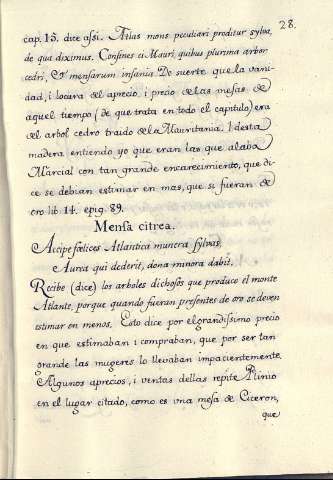 28.
cap. 15. dice assi. Atlas mons peculiari proditur sylva,
de qua diximus. Confines ei Mauri, quibus plurima arbor
cedri, & mensarum insania. De suerte que la vani-
dad, i locura del aprecio, i precio de las mesas de
aquel tiempo (de que trata en todo el capitulo) era
del arbol cedro traido de la Mauritania. I desta
madera entiendo yo que eran las que alaba
Marcial con tan grande encarecimiento, que di-
ce se debian estimar en mas, que si fueran de
oro lib. 14. epig. 89.
Mensa citrea.
Accipe fœlices Atlantica munera sylvas,
Aurea qui dederit, dona minora dabit.
Recibe (dice) los arboles dichosos que produce el monte
Atlante, porque quando fueran presentes de oro se deven
estimar en menos. Esto dice por el grandissimo precio
en que estimaban i compraban, que por ser tan
grande las mugeres lo llevaban impacientemente.
Algunos aprecios, i ventas dellas repite Plinio
en el lugar citado, como es una mesa de Ciceron,
que